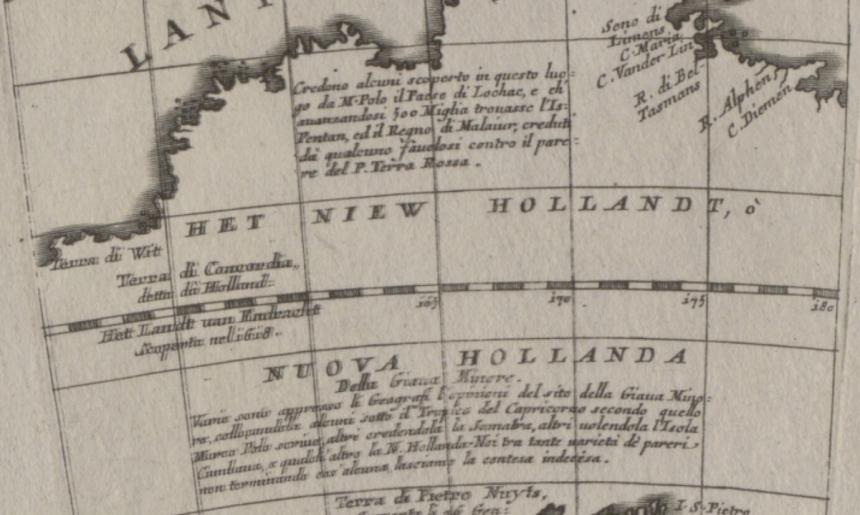 LANT
Seno di
Limens
C. Maria
C. Vander Lin
R. di Bel-
Tasmans
R. Alphen
C. Diemen
Credono alcuni scoperto in questo luo-
go da M. Polo il Paese di Lochac, e ch'
auanzandosi 500 Miglia trouasse l'Is.
Pentan, ed il Regno di Malaiur, creduti
da qualcuno fauolosi contro il pare-
re del P. Terra Rossa.
HET NIEW HOLLANDT, ò
Terra di Wit
Terra di Concordia,
detta di Holland
165 170 175 180
Het Landt van Endracht
Scoperta nel 1618.
NUOVA HOLLANDA
Della Giaua Minore.
Varie sono appresso li Geografi l'opinioni del sito della Giaua Mino-
re, collocandola alcuni sotto il Tropico del Capricorno secondo quello
Marco Polo scriue, altri credendola la Sumatra, altri uolendola l'Isola
Cumbaua, e qualch'altro la N. Hollanda. Noi tra tante varietà de pareri
non terminando cos'alcuna, lasciamo la contesa indecisa.
Terra di Pietro Nuyts,
I. S. Pietro